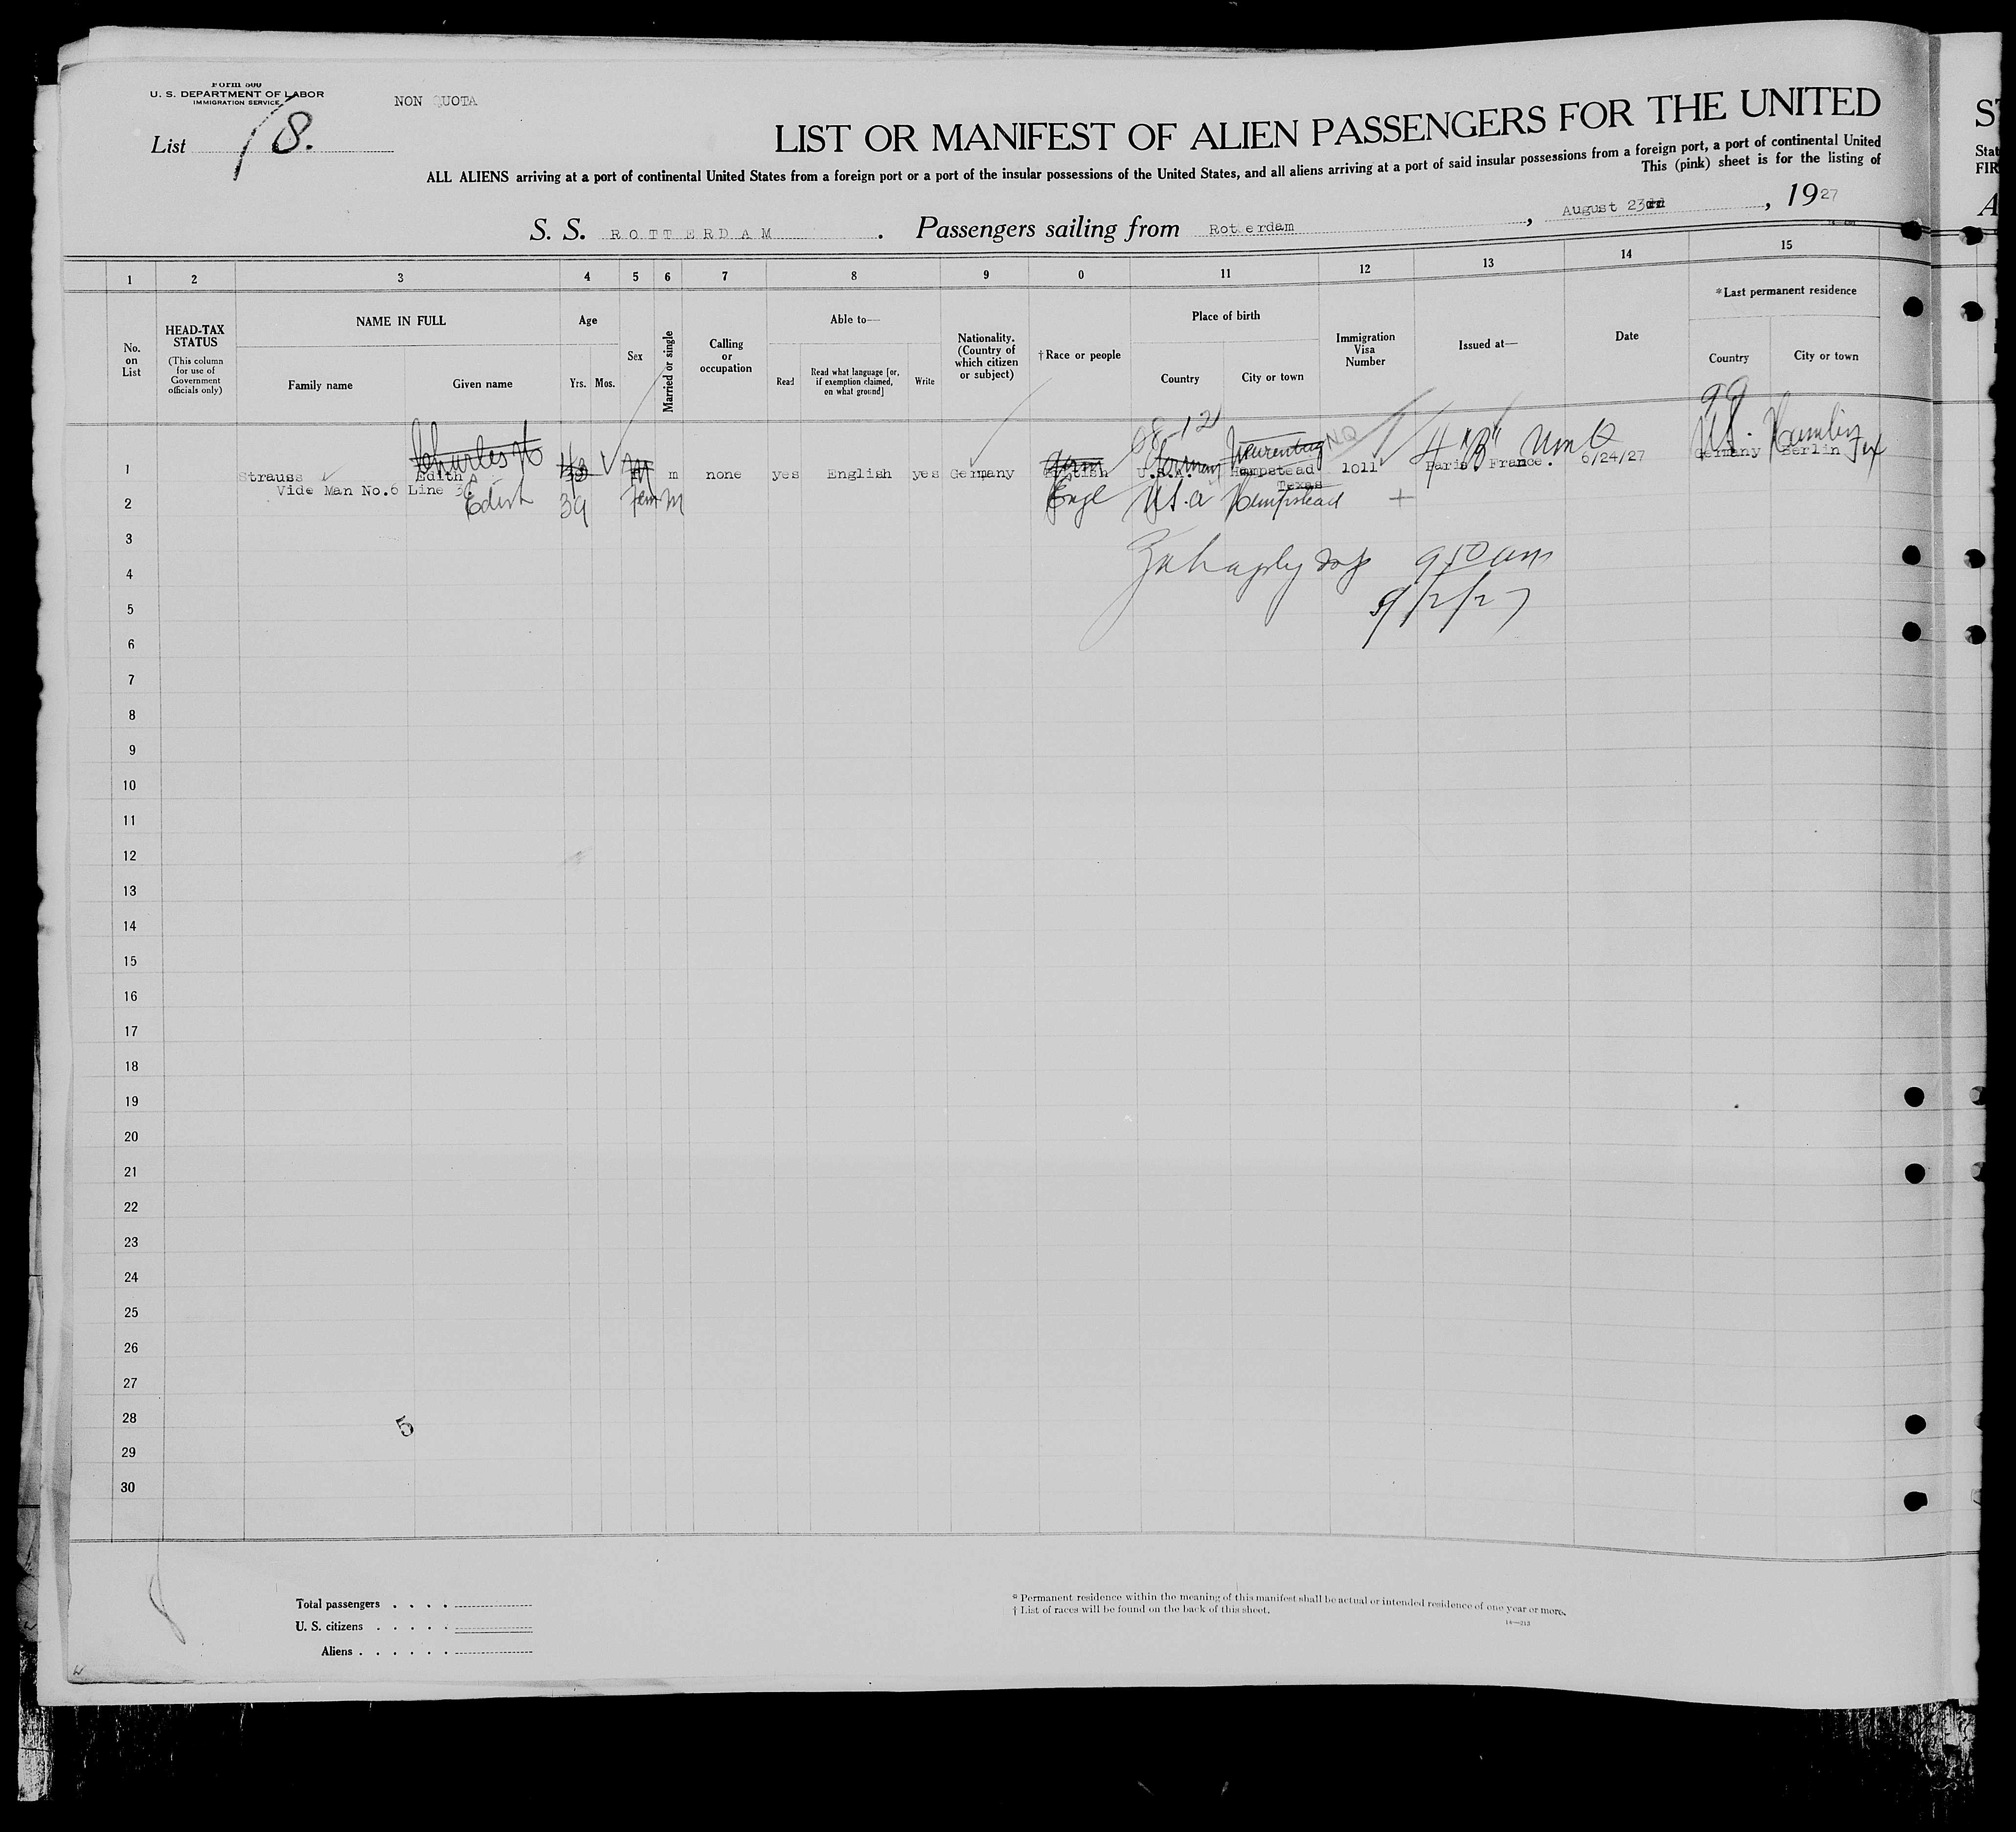 Form 500
U. S. DEPARTMENT OF LABOR
IMMIGRATION SERVICE
NON QUOTA
List 8.
LIST OR MANIFEST OF ALIEN PASSENGERS FOR THE UNITED
ALL ALIENS arriving at a port of continental United States from a foreign port or a port of the insular possessions of the United States, and all aliens arriving at a port of said insular possessions from a foreign port, a port of continental United
This (pink) sheet is for the listing of
S. S. ROTTERDAM . Passengers sailing from Rotterdam , August 23rd , 1927
1 2 3 4 5 6 7 8 9 0 11 12 13 14 15
No. on List
HEAD-TAX STATUS
(This column for use of Government officials only)
NAME IN FULL
Family name
Given name
Age
Yrs. Mos.
Sex
Married or single
Calling or occupation
Able to—
Read
Read what language [or, if exemption claimed, on what ground]
Write
Nationality. (Country of which citizen or subject)
† Race or people
Place of birth
Country
City or town
Immigration Visa Number
Issued at—
Date
*Last permanent residence
Country
City or town
99
Charles
NQ
4 "B"
U.S. Hamlin Tex
1 Strauss Edith m none yes English yes Germany U.S.A. Hempstead Texas 1011 Paris France. 6/24/27 Germany Berlin
Vide Man No.6 Line 3
2 Edith 39 Fem m Engl U.S.a Hempstead
3
4 950 am
5
6
7
8
9
10
11
12
13
14
15
16
17
18
19
20
21
22
23
24
25
26
27
28
5
29
30
Total passengers . . . .
U. S. citizens . . . . .
Aliens . . . . . .
* Permanent residence within the meaning of this manifest shall be actual or intended residence of one year or more.
† List of races will be found on the back of this sheet.
14—213
ST
Stat
FIR
A